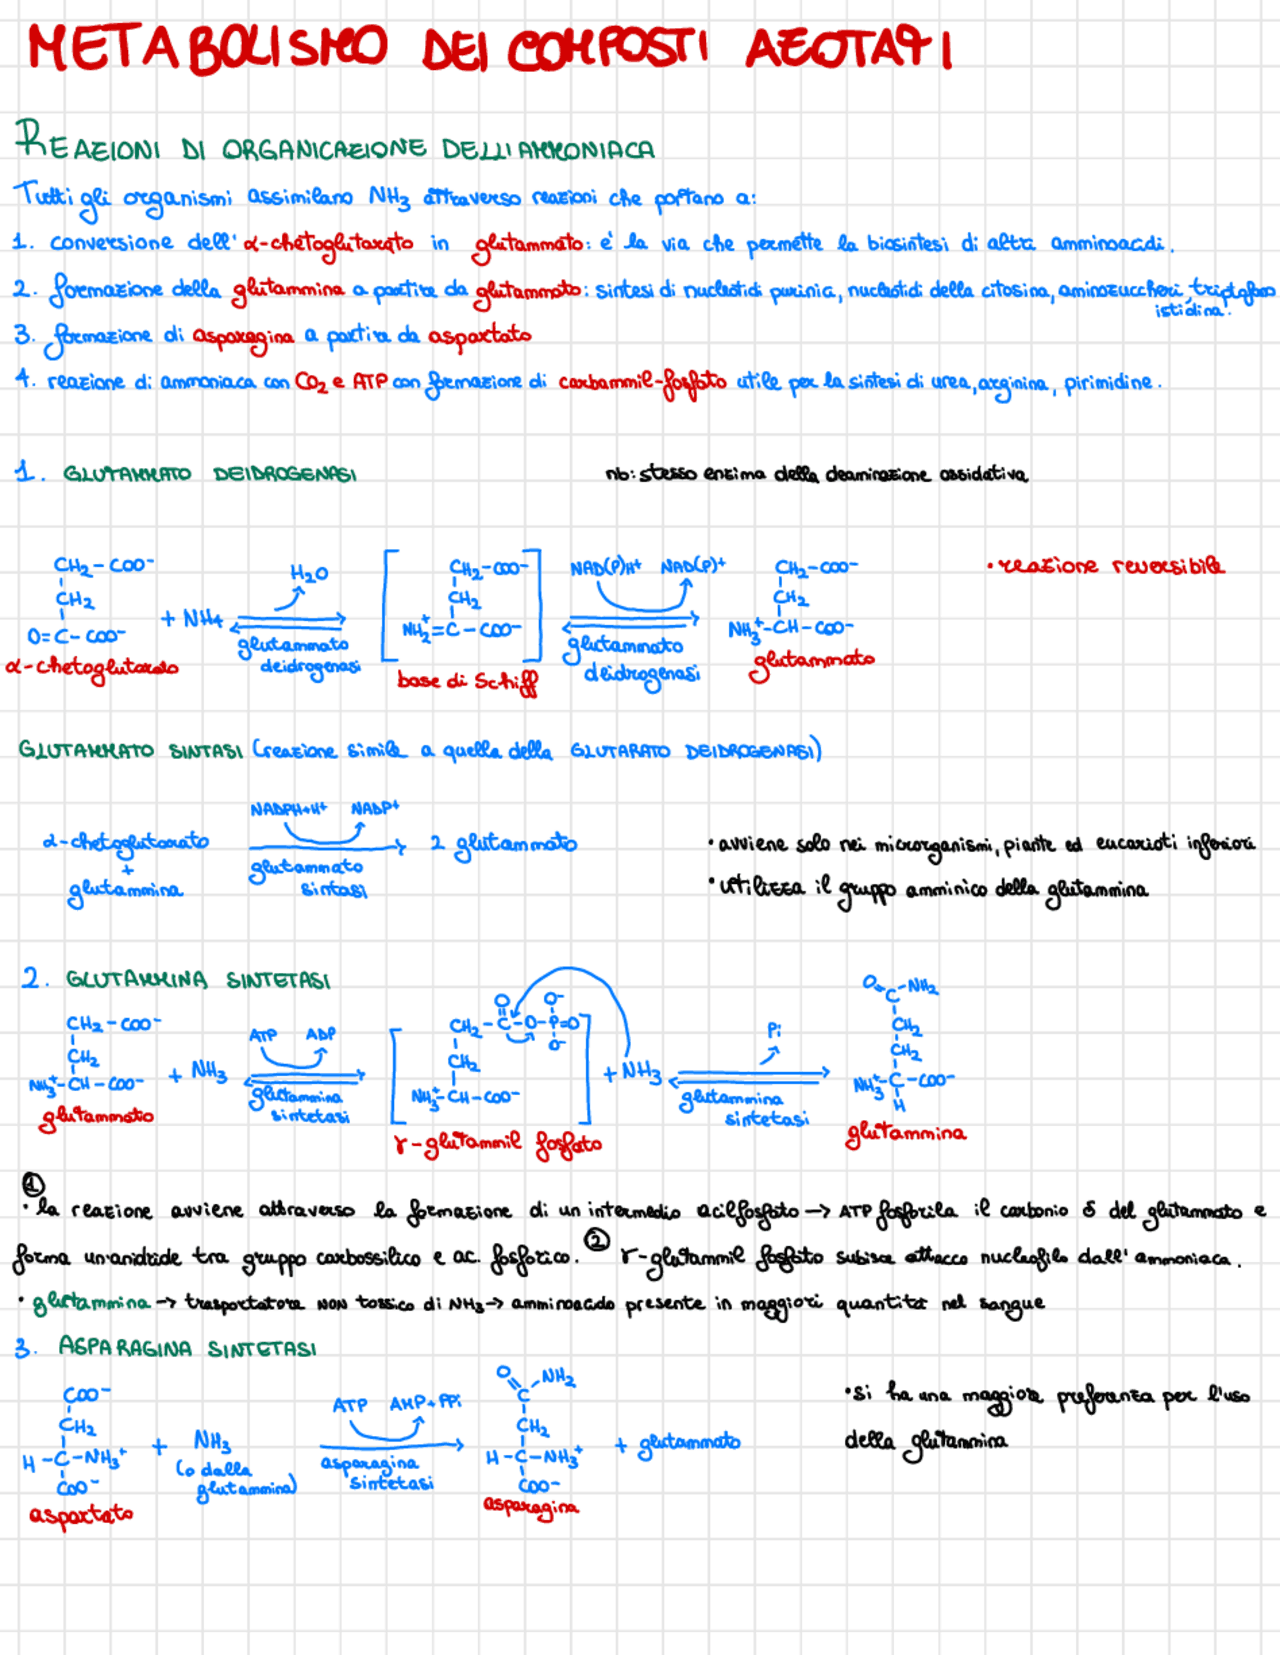 METABOLISMO DEI COMPOSTI AZOTATI
REAZIONI DI ORGANICAZIONE DELL'AMMONIACA
Tutti gli organismi assimilano NH3 attraverso reazioni che portano a:
1. conversione dell'α-chetoglutarato in glutammato: e' la via che permette la biosintesi di altri amminoacidi.
2. formazione della glutammina a partire da glutammato: sintesi di nucleotidi purinici, nucleotidi della citosina, aminozuccheri, triptofano
istidina.
3. formazione di asparagina a partire da aspartato
4. reazione di ammoniaca con CO2 e ATP con formazione di carbammil-fosfato utile per la sintesi di urea, arginina, pirimidine.
1. GLUTAMMATO DEIDROGENASI nb: stesso enzima della deaminazione ossidativa
CH2-COO- H2O CH2-COO- NAD(P)H+ NAD(P)+ CH2-COO- • reazione reversibile
CH2 CH2 CH2
O=C-COO- + NH4 NH2+=C-COO- NH3+-CH-COO-
α-chetoglutarato glutammato deidrogenasi base di Schiff glutammato deidrogenasi glutammato
GLUTAMMATO SINTASI (reazione simile a quella della GLUTARATO DEIDROGENASI)
NADPH+H+ NADP+
α-chetoglutarato 2 glutammato • avviene solo nei microrganismi, piante ed eucarioti inferiori
+ glutammato
glutammina sintasi • utilizza il gruppo amminico della glutammina
2. GLUTAMMINA SINTETASI
O O- O C-NH2
CH2-COO- ATP ADP CH2-C-O-P=O Pi CH2
CH2 CH2 O- CH2
NH3+-CH-COO- + NH3 NH3+-CH-COO- + NH3 NH3+-C-COO-
H
glutammato glutammina sintetasi γ-glutammil fosfato glutammina sintetasi glutammina
1
• la reazione avviene attraverso la formazione di un intermedio acilfosfato → ATP fosforila il carbonio δ del glutammato e
forma un'anidride tra gruppo carbossilico e ac. fosforico. 2 γ-glutammil fosfato subisce attacco nucleofilo dall'ammoniaca.
• glutammina → trasportatore NON tossico di NH3 → amminoacido presente in maggiori quantità nel sangue
3. ASPARAGINA SINTETASI
COO- O C NH2 • si ha una maggiore preferenza per l'uso
CH2 ATP AMP+PPi CH2
H-C-NH3+ + NH3 H-C-NH3+ + glutammato della glutammina
COO- (o dalla glutammina) asparagina sintetasi COO-
aspartato asparagina